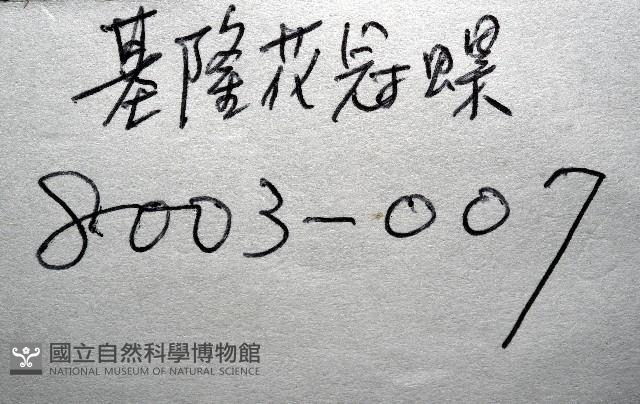 基隆花冠螺
8003-007
國立自然科學博物館
NATIONAL MUSEUM OF NATURAL SCIENCE